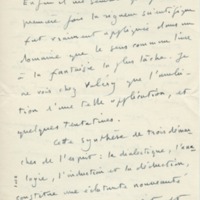 Enfin et me semble
première fois la rigueur scientifique
fut vraiment appliquée dans un
domaine que le sens commun livre
à la fantaisie la plus lâche. Je
ne vois chez Valéry que l'ambition
d'une telle application, et
quelques tentatives.
Cette synthèse de trois démarches
de l'esprit : la dialectique, l'ana
logie, l'induction et la déduction,
constitue une éclatante nouveauté
est